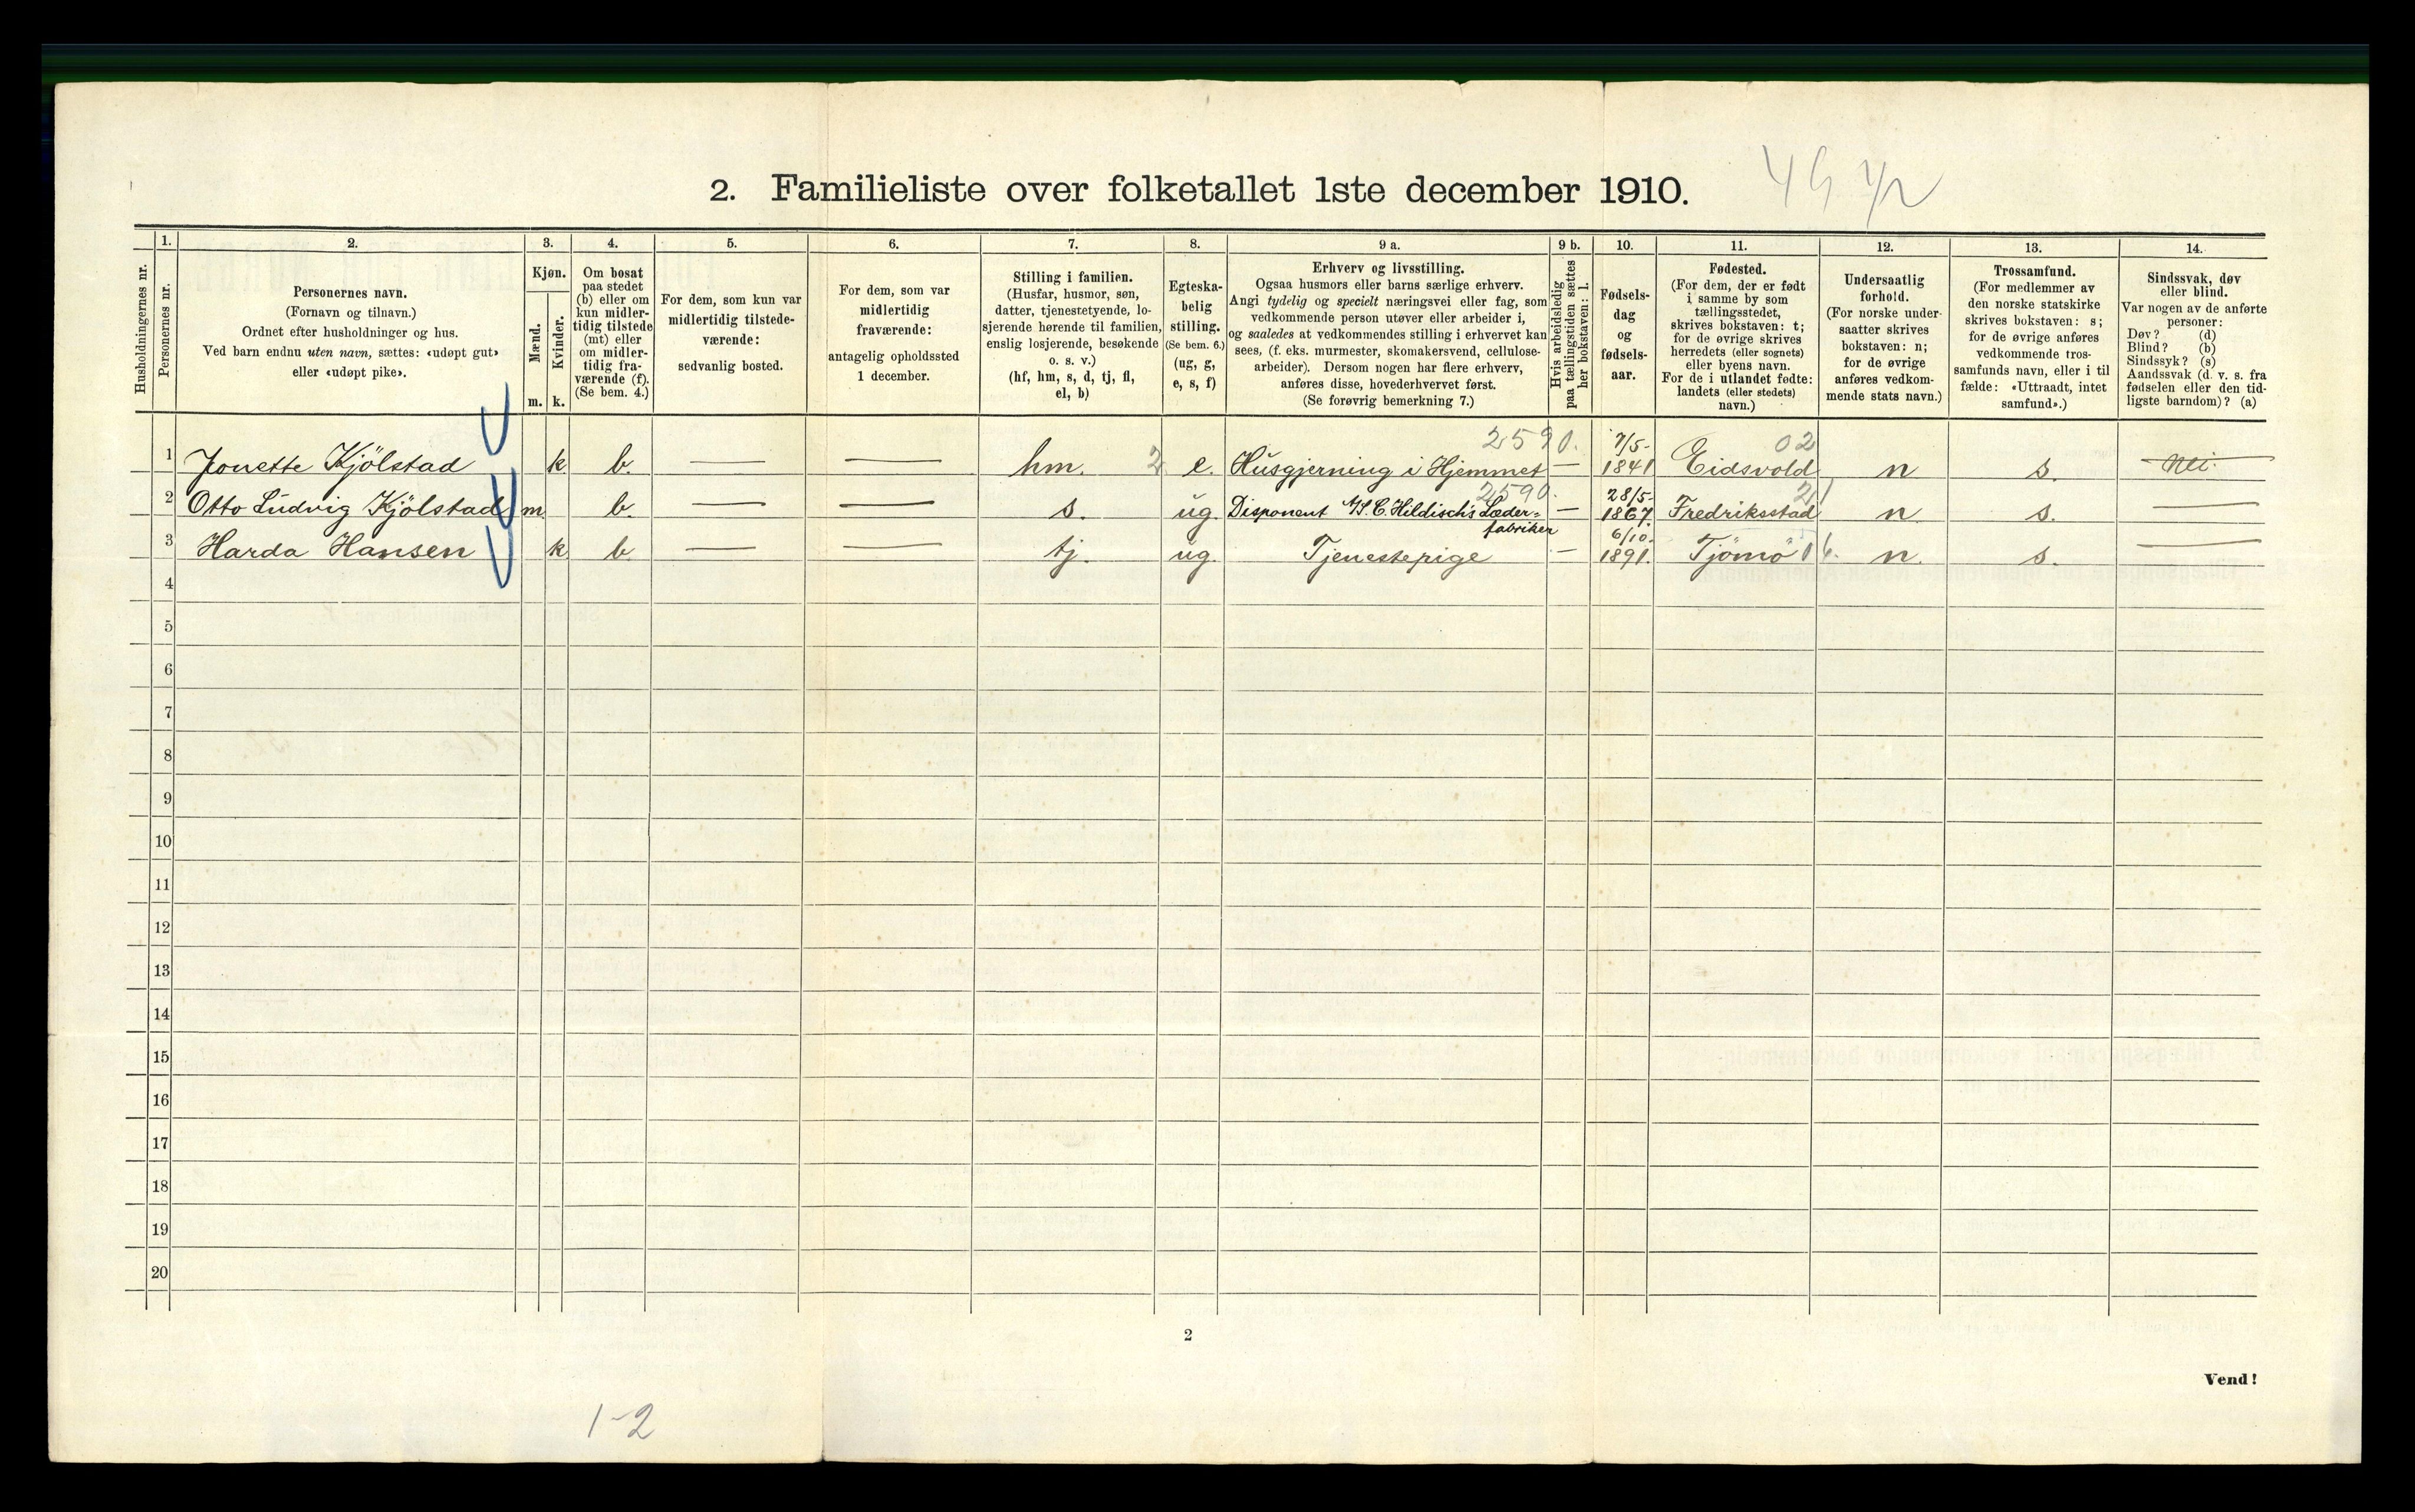 2. Familieliste over folketallet 1ste december 1910.
Husholdningernes nr.
1.
Personernes nr.
2.
Personernes navn.
(Fornavn og tilnavn.)
Ordnet efter husholdninger og hus.
Ved barn endnu uten navn, sættes: «udøpt gut»
eller «udøpt pike».
3.
Kjøn.
Mænd.
Kvinder.
m. k.
4.
Om bosat
paa stedet
(b) eller om
kun midler-
tidig tilstede
(mt) eller
om midler-
tidig fra-
værende (f).
(Se bem. 4.)
5.
For dem, som kun var
midlertidig tilstede-
værende:
sedvanlig bosted.
6.
For dem, som var
midlertidig
fraværende:
antagelig opholdssted
1 december.
7.
Stilling i familien.
(Husfar, husmor, søn,
datter, tjenestetyende, lo-
sjerende hørende til familien,
enslig losjerende, besøkende
o. s. v.)
(hf, hm, s, d, tj, fl,
el, b)
8.
Egteska-
belig
stilling.
(Se bem. 6.)
(ug, g,
e, s, f)
9 a.
Erhverv og livsstilling.
Ogsaa husmors eller barns særlige erhverv.
Angi tydelig og specielt næringsvei eller fag, som
vedkommende person utøver eller arbeider i,
og saaledes at vedkommendes stilling i erhvervet kan
sees, (f. eks. murmester, skomakersvend, cellulose-
arbeider). Dersom nogen har flere erhverv,
anføres disse, hovederhvervet først.
(Se forøvrig bemerkning 7.)
9 b.
Hvis arbeidsledig
paa tællingstiden sættes
her bokstaven: l.
10.
Fødsels-
dag
og
fødsels-
aar.
11.
Fødested.
(For dem, der er født
i samme by som
tællingsstedet,
skrives bokstaven: t;
for de øvrige skrives
herredets (eller sognets)
eller byens navn.
For de i utlandet fødte:
landets (eller stedets)
navn.)
12.
Undersaatlig
forhold.
(For norske under-
saatter skrives
bokstaven: n;
for de øvrige
anføres vedkom-
mende stats navn.)
13.
Trossamfund.
(For medlemmer av
den norske statskirke
skrives bokstaven: s;
for de øvrige anføres
vedkommende tros-
samfunds navn, eller i til
fælde: «Uttraadt, intet
samfund».)
14.
Sindssvak, døv
eller blind.
Var nogen av de anførte
personer:
Døv? (d)
Blind? (b)
Sindssyk? (s)
Aandssvak (d. v. s. fra
fødselen eller den tid-
ligste barndom)? (a)
2590. 7/5- 02
1 Jonette Kjölstad k b. — — hm. 2 e. Husgjerning i Hjemmet — 1841 Eidsvold n s. Nei.
2590. 28/5- 21
2 Otto Ludvig Kjölstad m b. — — s. ug. Disponent A/S. C. Hildisch's Læder- — 1867. Fredriksstad n s. —
fabriker 6/10-
3 Harda Hansen k b — — tj. ug. Tjenestepige — 1891. Tjömö n. s. —
4
5
6
7
8
9
10
11
12
13
14
15
16
17
18
19
20
2
Vend!
1-2